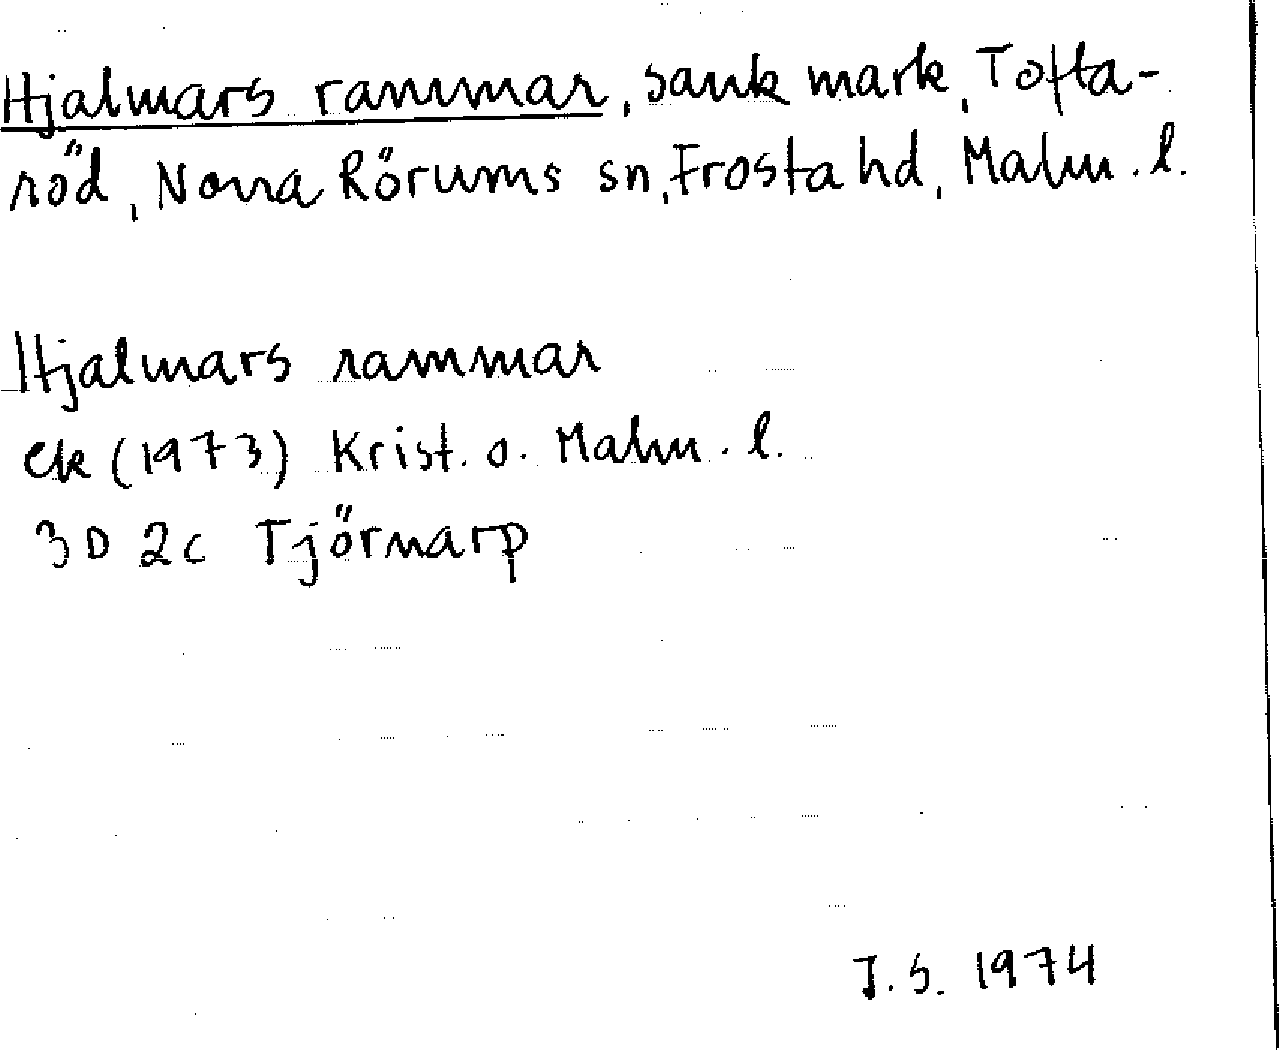 Hjalmars rammar, sank mark, Tofta-
röd, Norra Rörums sn, Frosta hd, Malm. l.
Hjalmars rammar
ek (1973) Krist. o. Malm. l.
3D 2c Tjörnarp
J. S. 1974